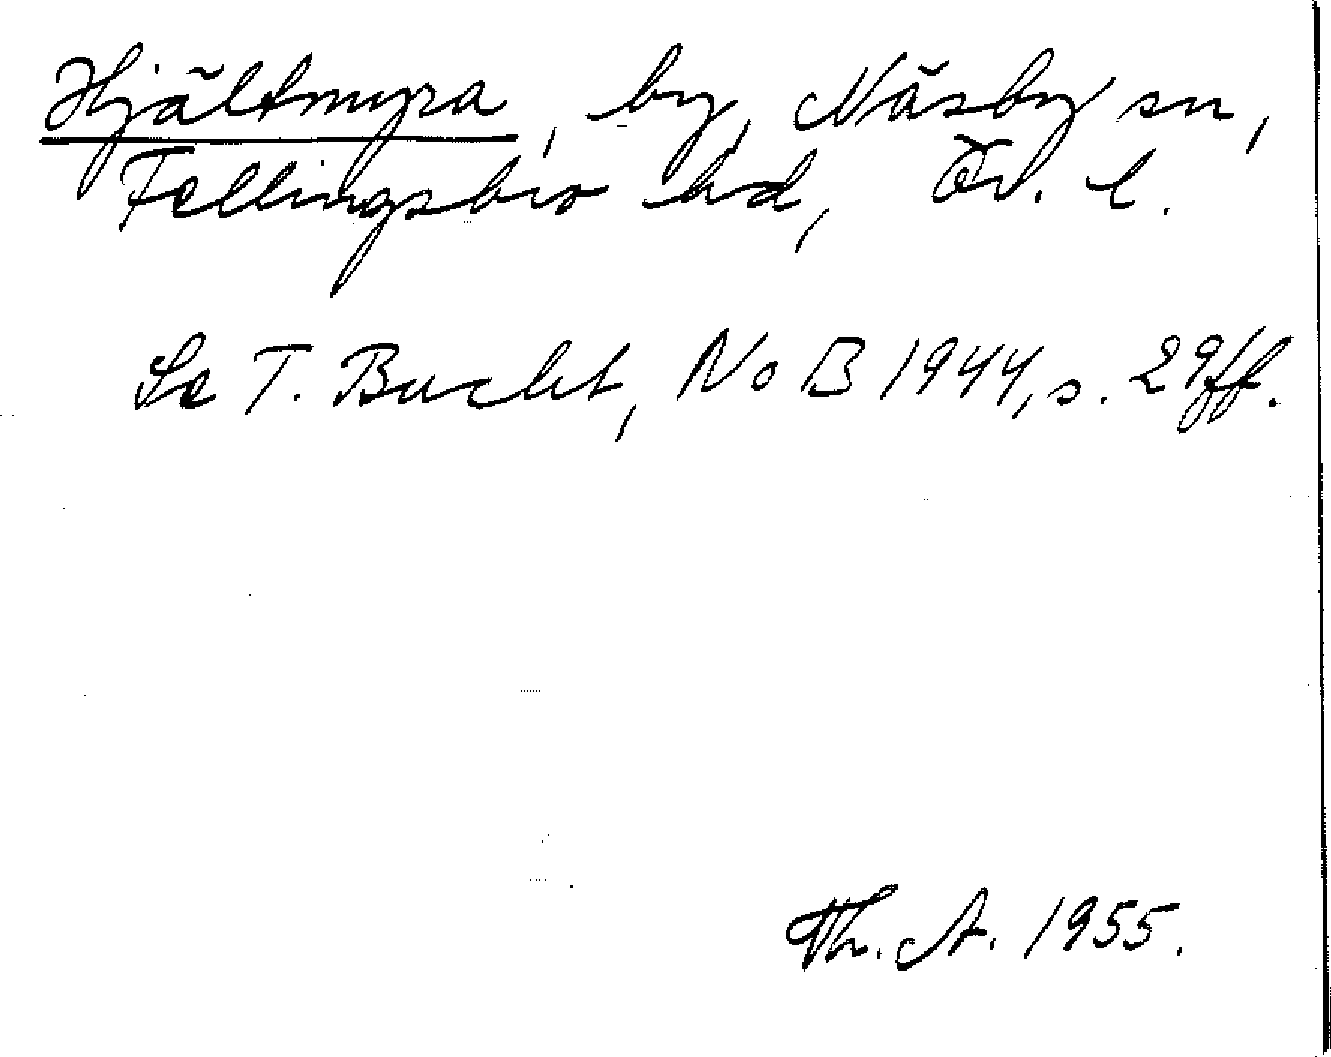 Hjältmyra, by, Näsby sn,
Fellingsbro hd, Ör. l.
Se T. Bucht, NoB 1944, s. 29 ff.
Th. A. 1955.